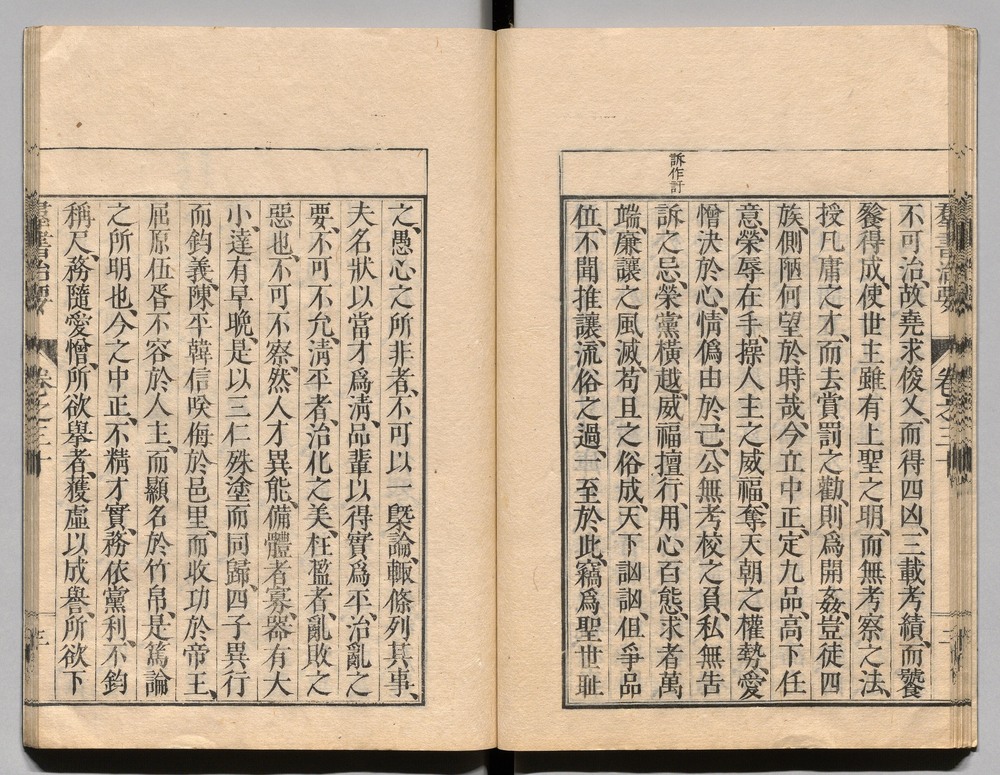 羣書治要 卷之三十
不可治、故堯求俊乂、而得四凶、三載考績、而饕
餮得成、使世主雖有上聖之明、而無考察之法、
授凡庸之才、而去賞罰之勸、則爲開姦、豈徒四
族、側陋何望於時哉、今立中正、定九品、高下任
意、榮辱在手、操人主之威福、奪天朝之權勢、愛
憎決於心、情僞由於己、公無考校之負、私無告
訴之忌、榮黨橫越、威福擅行、用心百態、求者萬
端、廉讓之風滅、苟且之俗成、天下訩訩、但爭品
位、不聞推讓、流俗之過、一至於此、竊爲聖世耻
訴作訐
之、愚心之所非者、不可以一槩論、輙條列其事、
夫名狀以當才爲淸、品輩以得實爲平、治亂之
要、不可不允、淸平者、治化之美、枉濫者、亂敗之
惡也、不可不察、然人才異能、備體者寡、器有大
小、達有早晩、是以三仁殊塗而同歸、四子異行
而鈞義、陳平韓信唉侮於邑里、而收功於帝王、
屈原伍胥不容於人主、而顯名於竹帛、是篤論
之所明也、今之中正、不精才實、務依黨利、不鈞
稱尺、務隨愛憎、所欲擧者、獲虛以成譽、所欲下
羣書治要 卷之三十